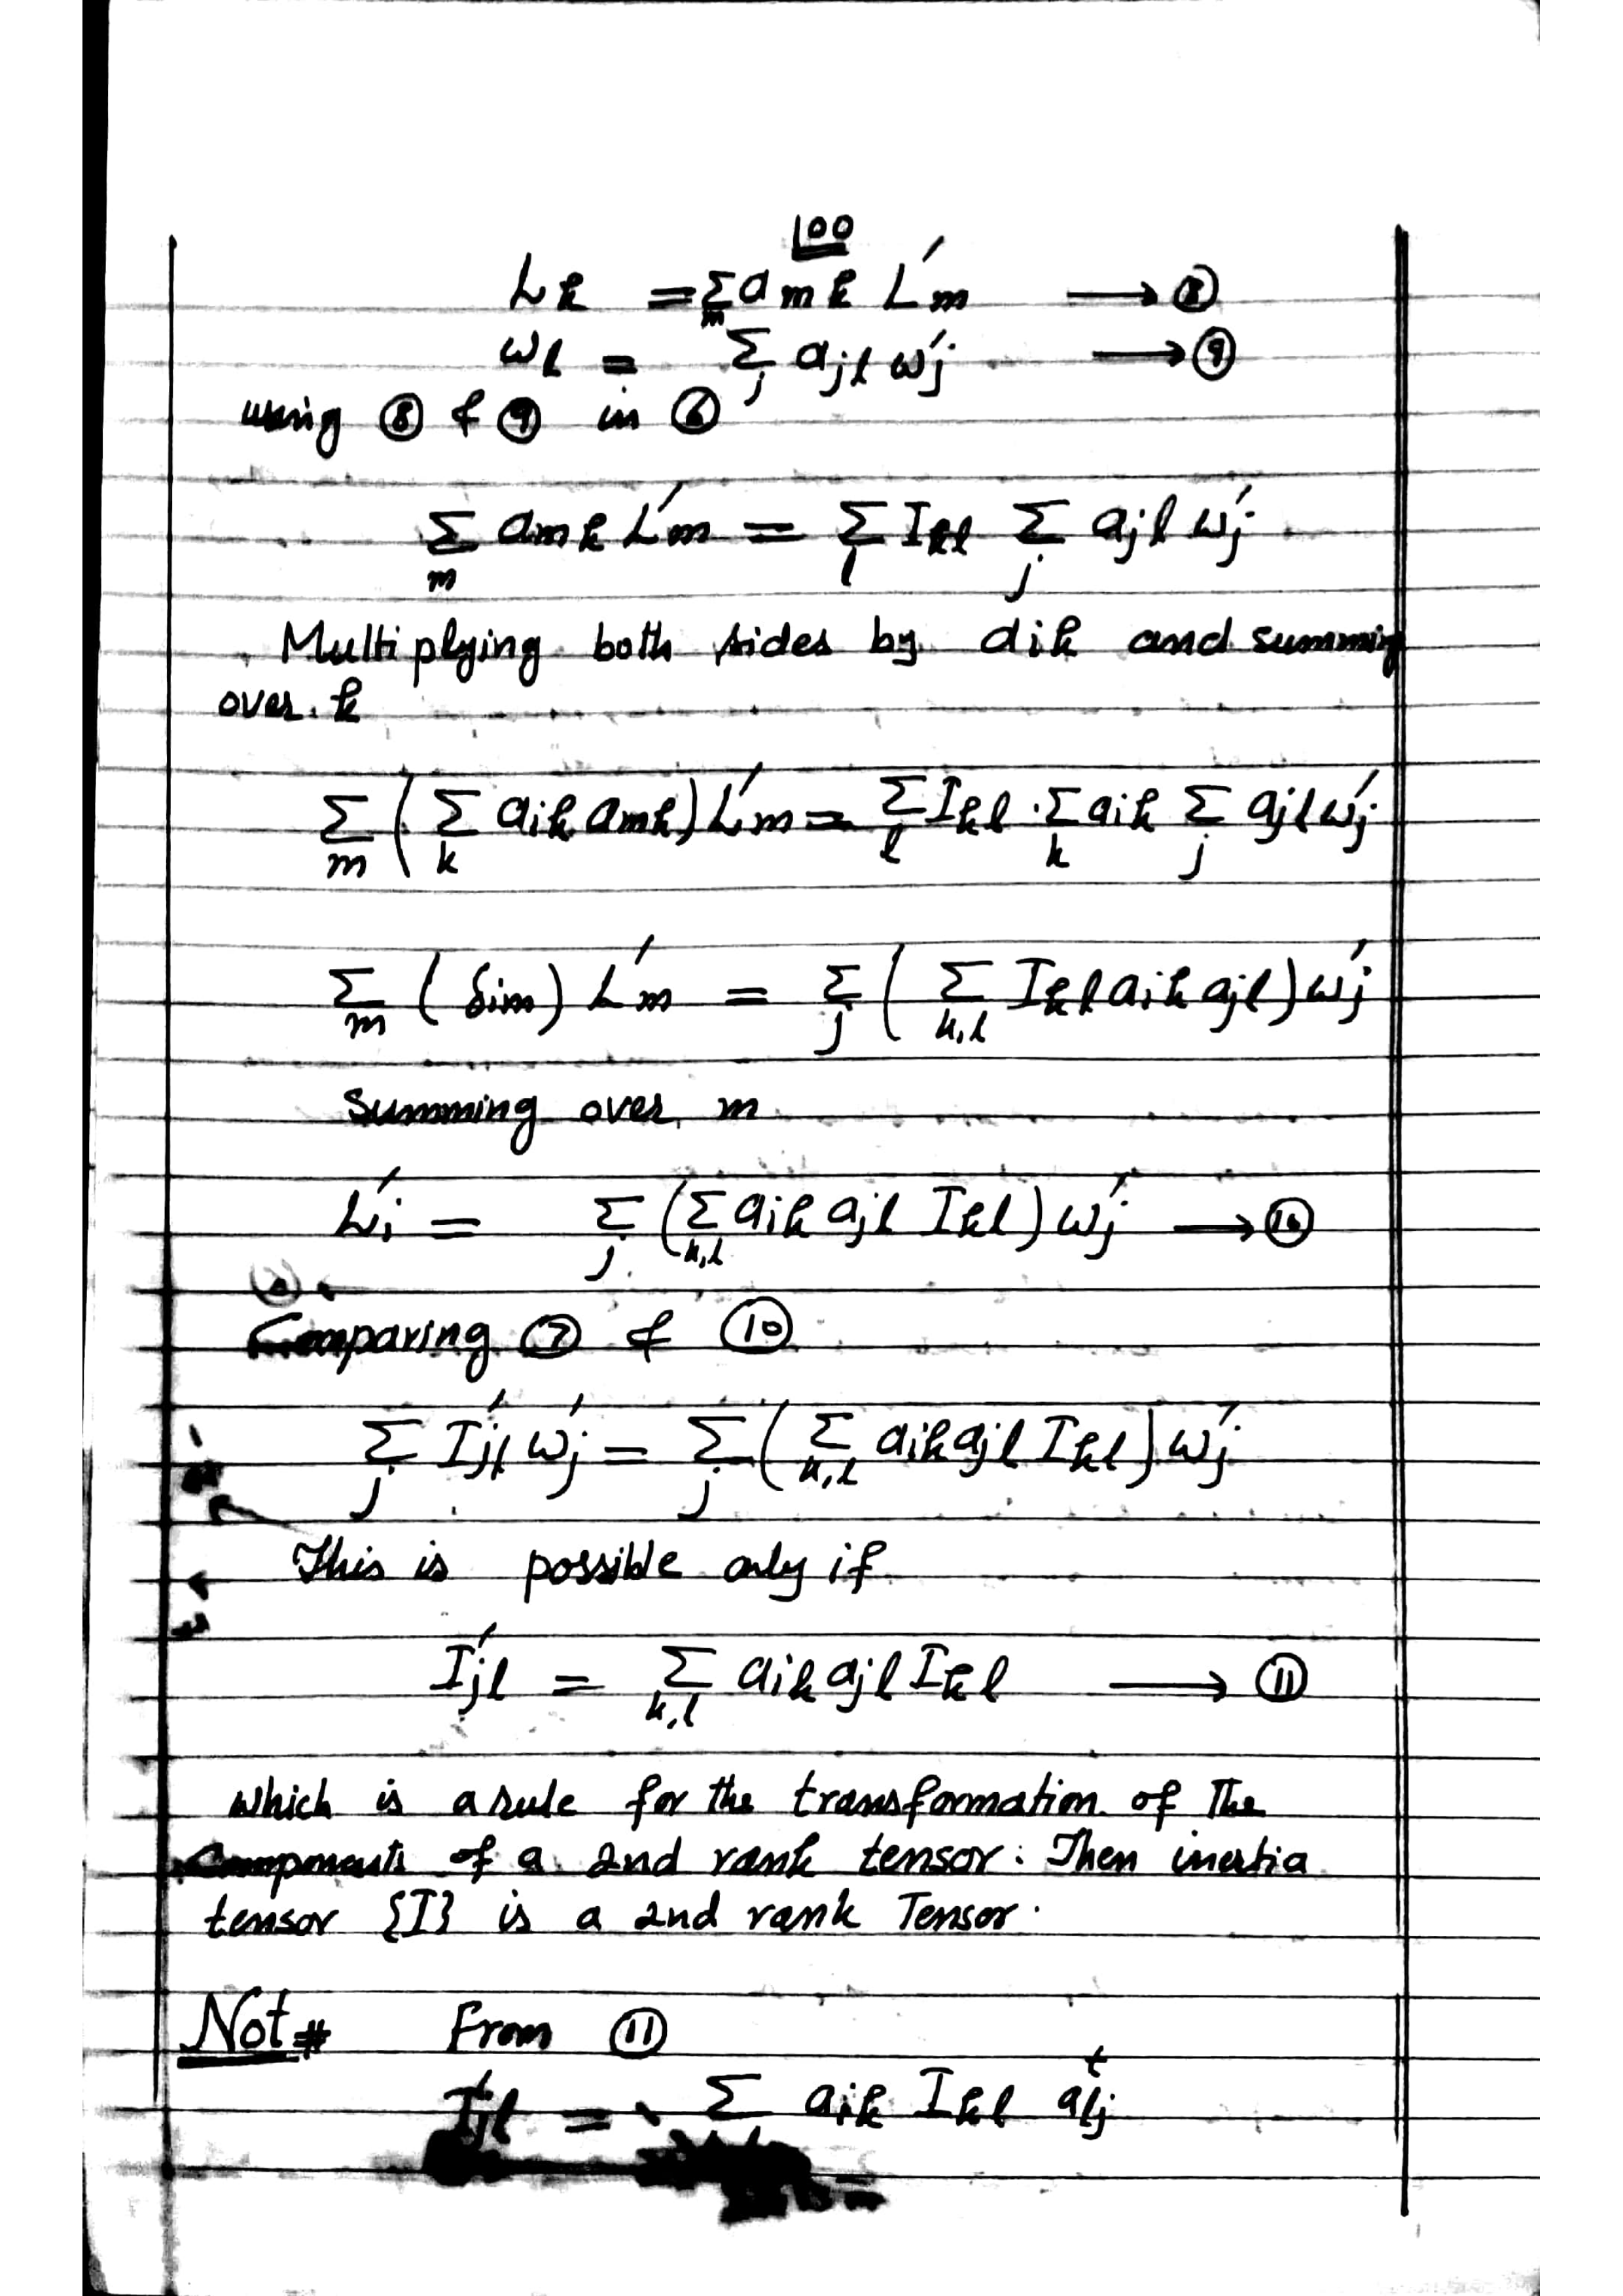 100
L_k = Σ_m a_mk L'_m → ⑧
ω_l = Σ_j a_jl ω'_j → ⑨
using ⑧ & ⑨ in ⑥
Σ_m a_mk L'_m = Σ_l I_kl Σ_j a_jl ω'_j
Multiplying both sides by a_ik and summing
over k
Σ_m (Σ_k a_ik a_mk) L'_m = Σ_l I_kl · Σ_k a_ik Σ_j a_jl ω'_j
Σ_m (δ_im) L'_m = Σ_j (Σ_k,l I_kl a_ik a_jl) ω'_j
Summing over m
L'_i = Σ_j (Σ_k,l a_ik a_jl I_kl) ω'_j → ⑩
Comparing ⑦ & ⑩
Σ_j I'_jl ω'_j = Σ_j (Σ_k,l a_ik a_jl I_kl) ω'_j
This is possible only if
I'_jl = Σ_k,l a_ik a_jl I_kl → ⑪
which is a rule for the transformation of The
Components of a 2nd rank tensor. Then inertia
tensor {I} is a 2nd rank Tensor.
Not # From ⑪
I'_jl = Σ a_ik I_kl a^t_lj